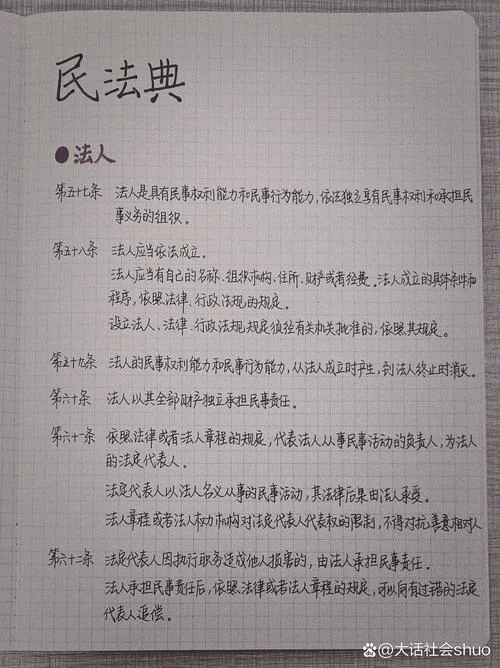 民法典
●法人
第五十七条 法人是具有民事权利能力和民事行为能力,依法独立享有民事权利和承担民
事义务的组织。
第五十八条 法人应当依法成立。
法人应当有自己的名称、组织机构、住所、财产或者经费。法人成立的具体条件和
程序,依照法律、行政法规的规定。
设立法人、法律、行政法规规定须经有关机关批准的,依照其规定。
第五十九条 法人的民事权利能力和民事行为能力,从法人成立时产生,到法人终止时消灭。
第六十条 法人以其全部财产独立承担民事责任。
第六十一条 依照法律或者法人章程的规定,代表法人从事民事活动的负责人,为法人
的法定代表人。
法定代表人以法人名义从事的民事活动,其法律后果由法人承受。
法人章程或者法人权力机构对法定代表人代表权的限制,不得对抗善意相对人
第六十二条 法定代表人因执行职务造成他人损害的,由法人承担民事责任。
法人承担民事责任后,依照法律或者法人章程的规定,可以向有过错的法定
代表人追偿。
@大话社会shuo